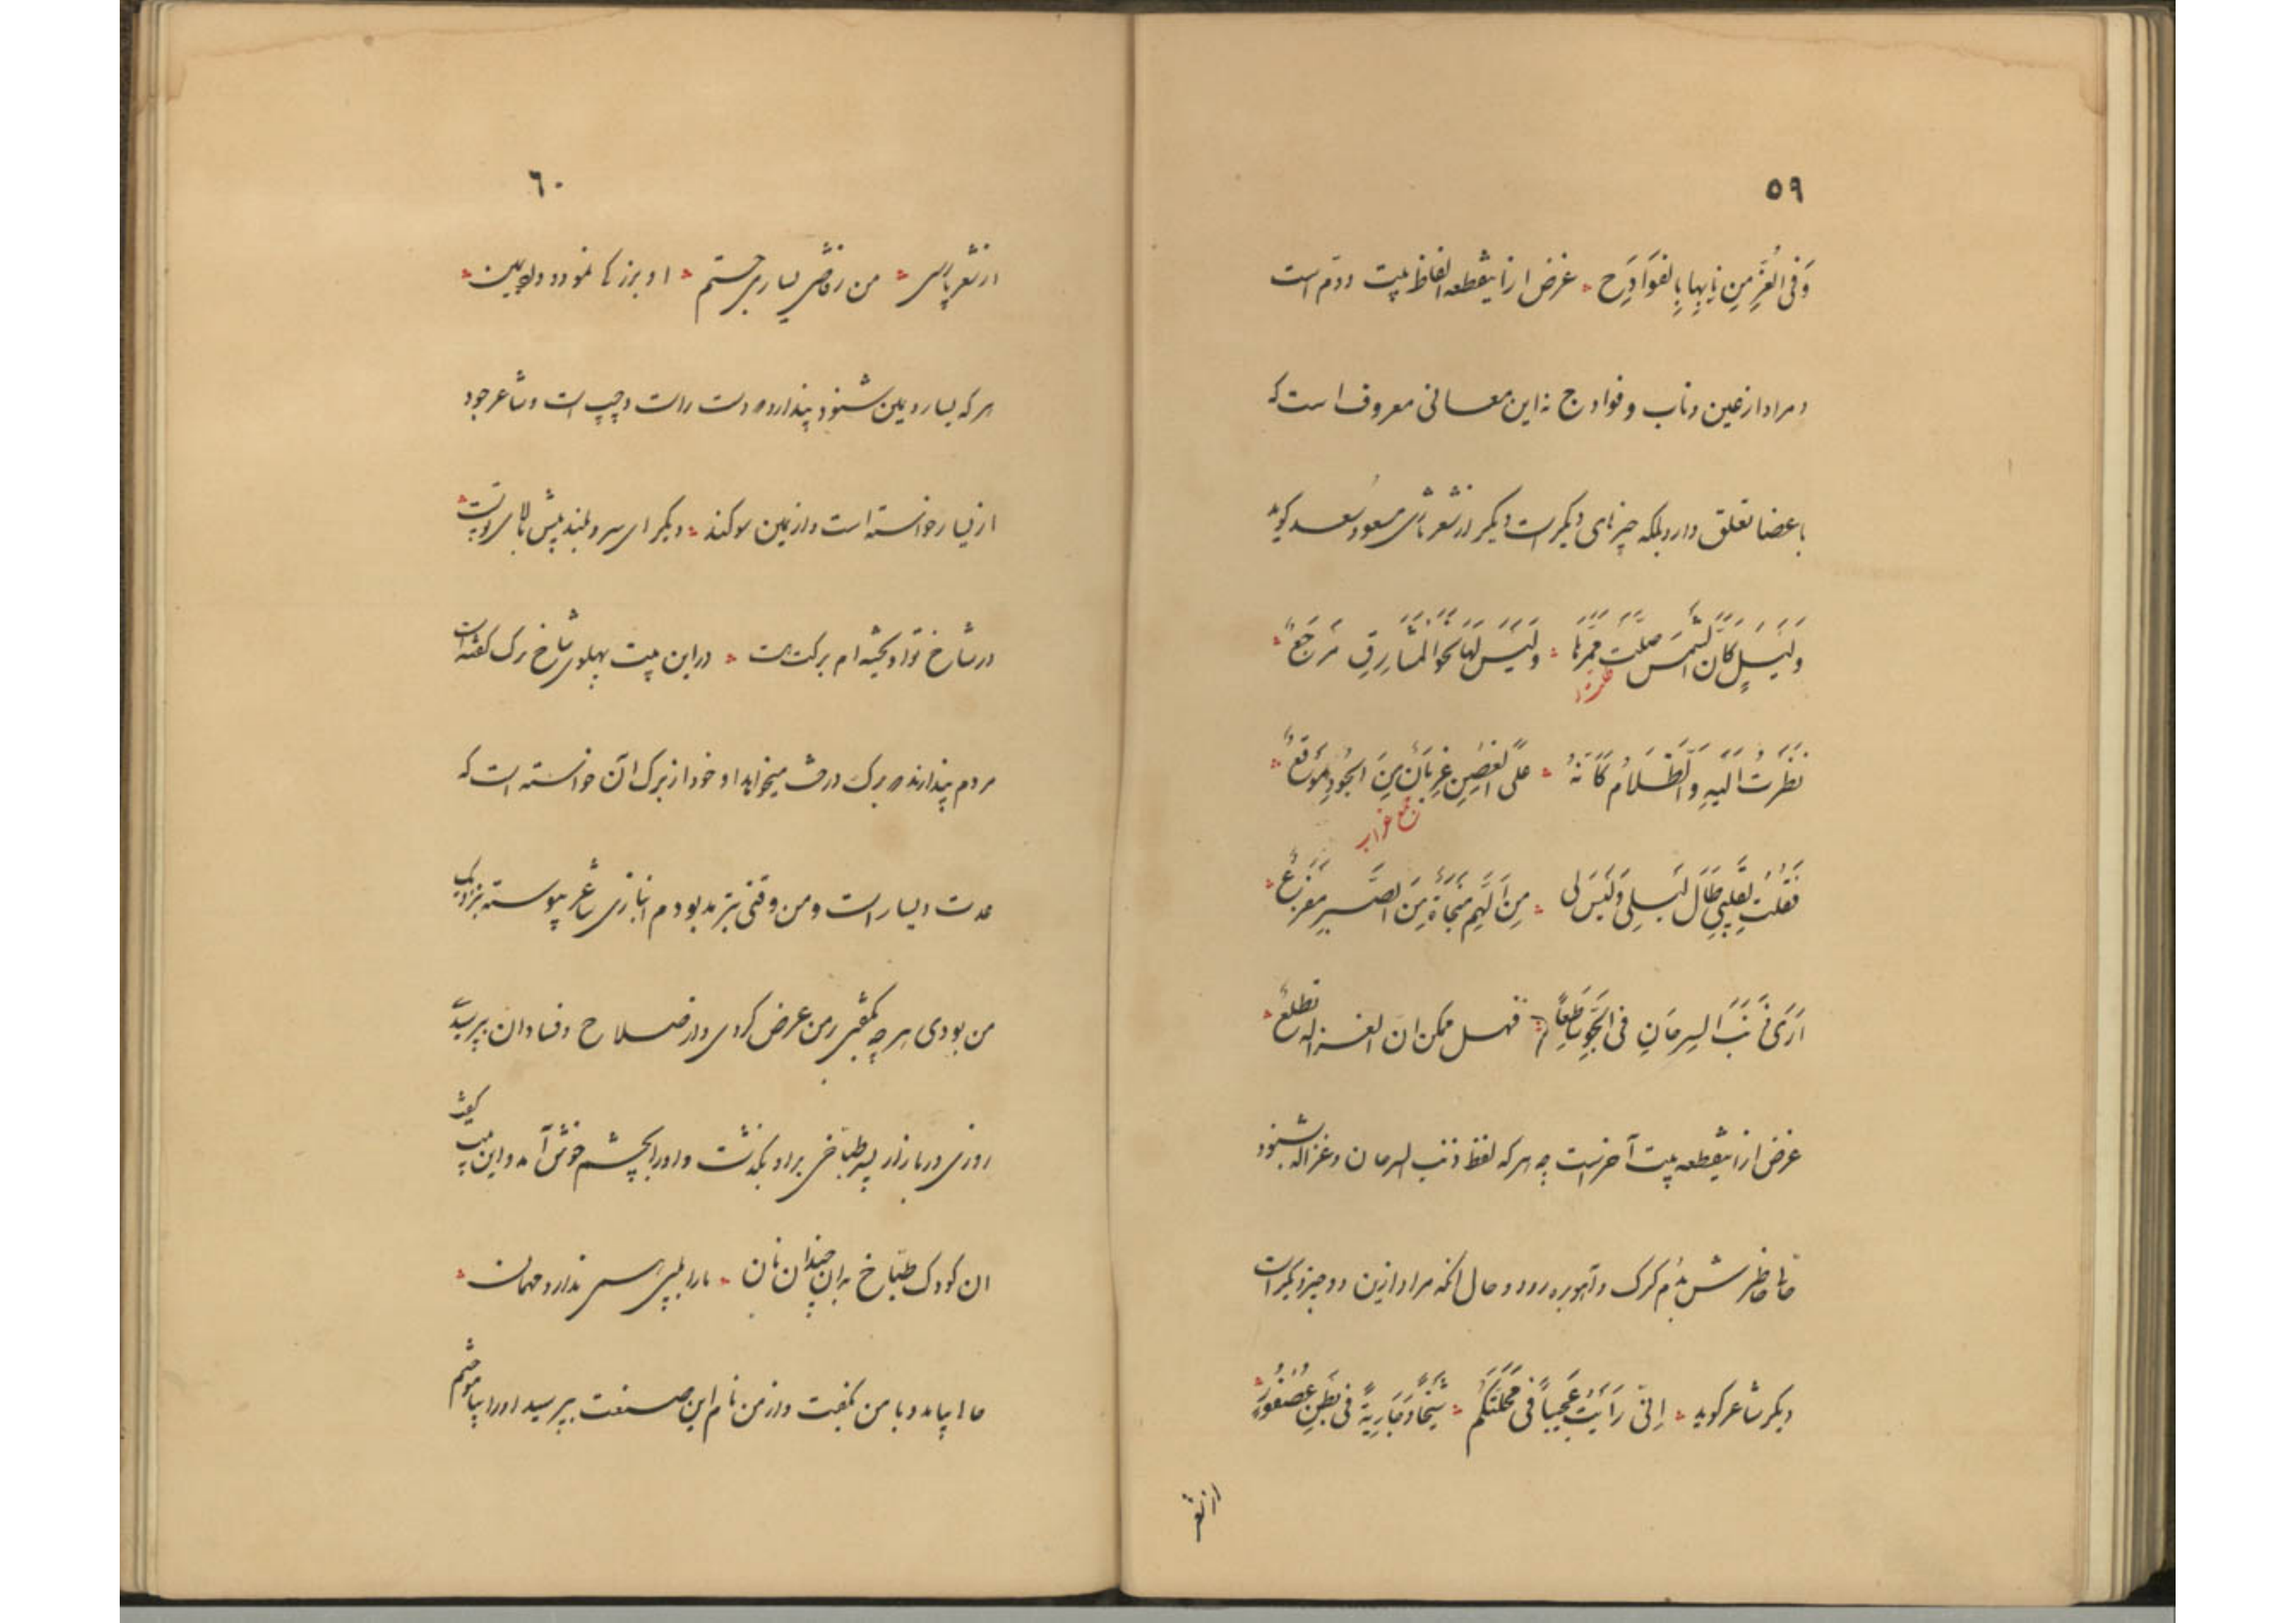 ٥٩
وَفی الغُرِّ مِن نابِها بِالفَوَادِحِ ؞ غرض ازاینقطعه الفاظ بیت دوّم است
و مراد از عین و ناب و فوادح نه این معانی معروف است که
باعضا تعلق دارد بلکه چیزهای دیکر است دیکر از شعر تازی مسعود سعد کوید
وَلَیلٍ کَاَنَّ الشَّمسَ ضلّت مَمَرَّها ؞ وَلَیسَ لَها نَحوَ المَشارِقِ مَرجَعٌ ؞
نَظَرتُ اِلَیهِ وَالظَّلامُ کَاَنَّهُ ؞ عَلَی العَینِ غِربانٌ مِنَ الجَوِّ وُقَّعٌ ؞
جمع غراب
فَقُلتُ لِقَلبی طالَ لَیلی وَلَیسَ لی ؞ مِنَ الهَمِّ مَنجاةٌ مِنَ الصَّبرِ مَفزَعٌ ؞
اَرَی ذَنَبَ السِرحانِ فی الجَوِّ ساطِعاً ؞ فهل ممکن ان الغزاله تطلعُ ؞
غرض ازاینقطعه بیت آخرست چه هر که لفظ ذنب السرحان و غزاله شنود
خاطرش بدُم کرک و آهوبره رود و حال آنکه مراد ازین دو چیز دیکر است
دیکر شاعر کوید ؞ اِنّی رَاَیتُ عَجیباً فی مَحَلَّتِکُم ؞ شَیخاً وَجارِیةً فی بَطنِ عُصفُورٍ ؞
٦٠
از شعر پارسی ؞ من رقاصی یساری جستم ؞ او بزرکا نمود و دلو یمین ؞
هر که یسار و یمین شنود پندارد دست راست و چپ است و شاعر خود
از یسار خواسته است و از یمین سوکند ؞ دیکر ای سرو بلند پیش بالای تو پست ؞
در شاخ تو آویخته ام برکت هست ؞ در این بیت پهلوی شاخ برک کفته است
مردم پندارند برک درخت میخواهد او خود از برک آن خواسته است که
عدت و یسار است و من وقتی بترمد بودم انبازی شاعر پیوسته بنزدیک
من بودی هر چه بکفتی بر من عرض کردی و از صلاح و فساد آن بپرسیدی
روزی در بازار پسر طباخی بر او بکذشت و او را بچشم خوش آمد و این بیت بکفت
ان کودک طبّاخ بدان چندان نان ؞ مارا بلبی همی ندارد مهمان ؞
مارا بیامد و با من بکفت و از من نام این صنعت بپرسید او را بیاموختم